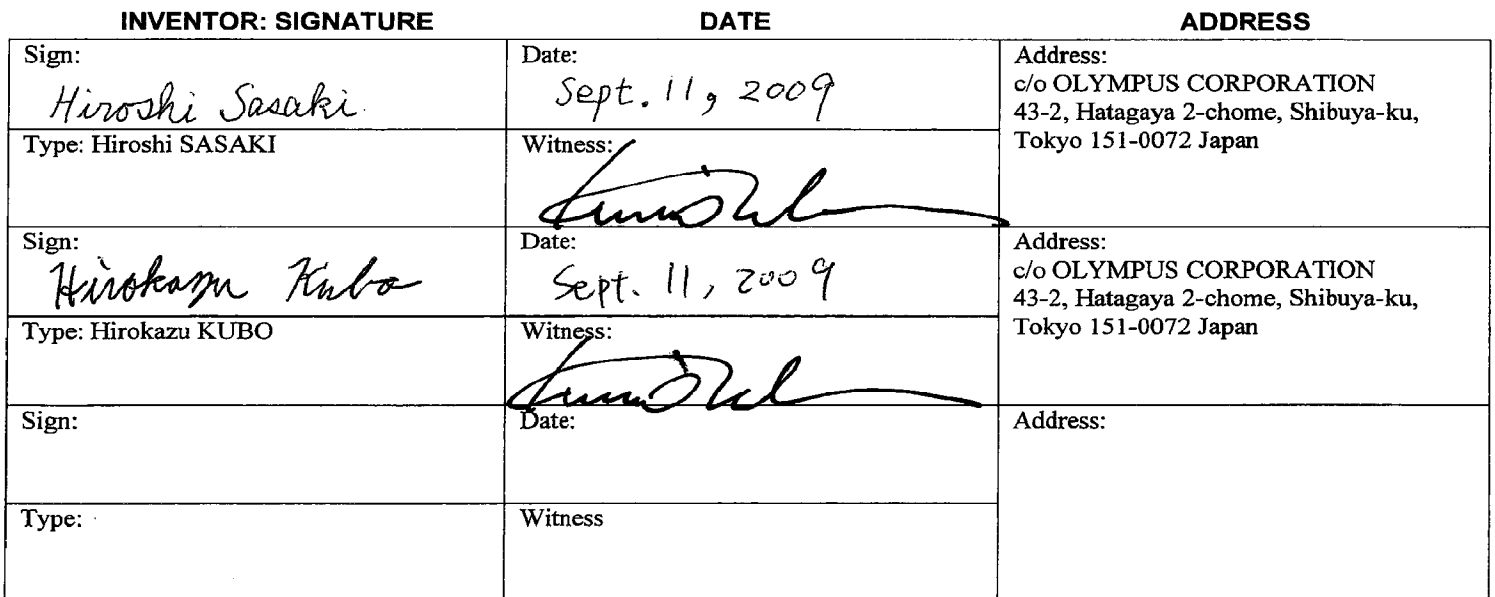 INVENTOR: SIGNATURE DATE ADDRESS
Sign:
Hiroshi Sasaki
Date:
Sept. 11, 2009
Address:
c/o OLYMPUS CORPORATION
43-2, Hatagaya 2-chome, Shibuya-ku,
Tokyo 151-0072 Japan
Type: Hiroshi SASAKI
Witness:
Sign:
Hirokazu Kubo
Date:
Sept. 11, 2009
Address:
c/o OLYMPUS CORPORATION
43-2, Hatagaya 2-chome, Shibuya-ku,
Tokyo 151-0072 Japan
Type: Hirokazu KUBO
Witness:
Sign:
Date:
Address:
Type:
Witness